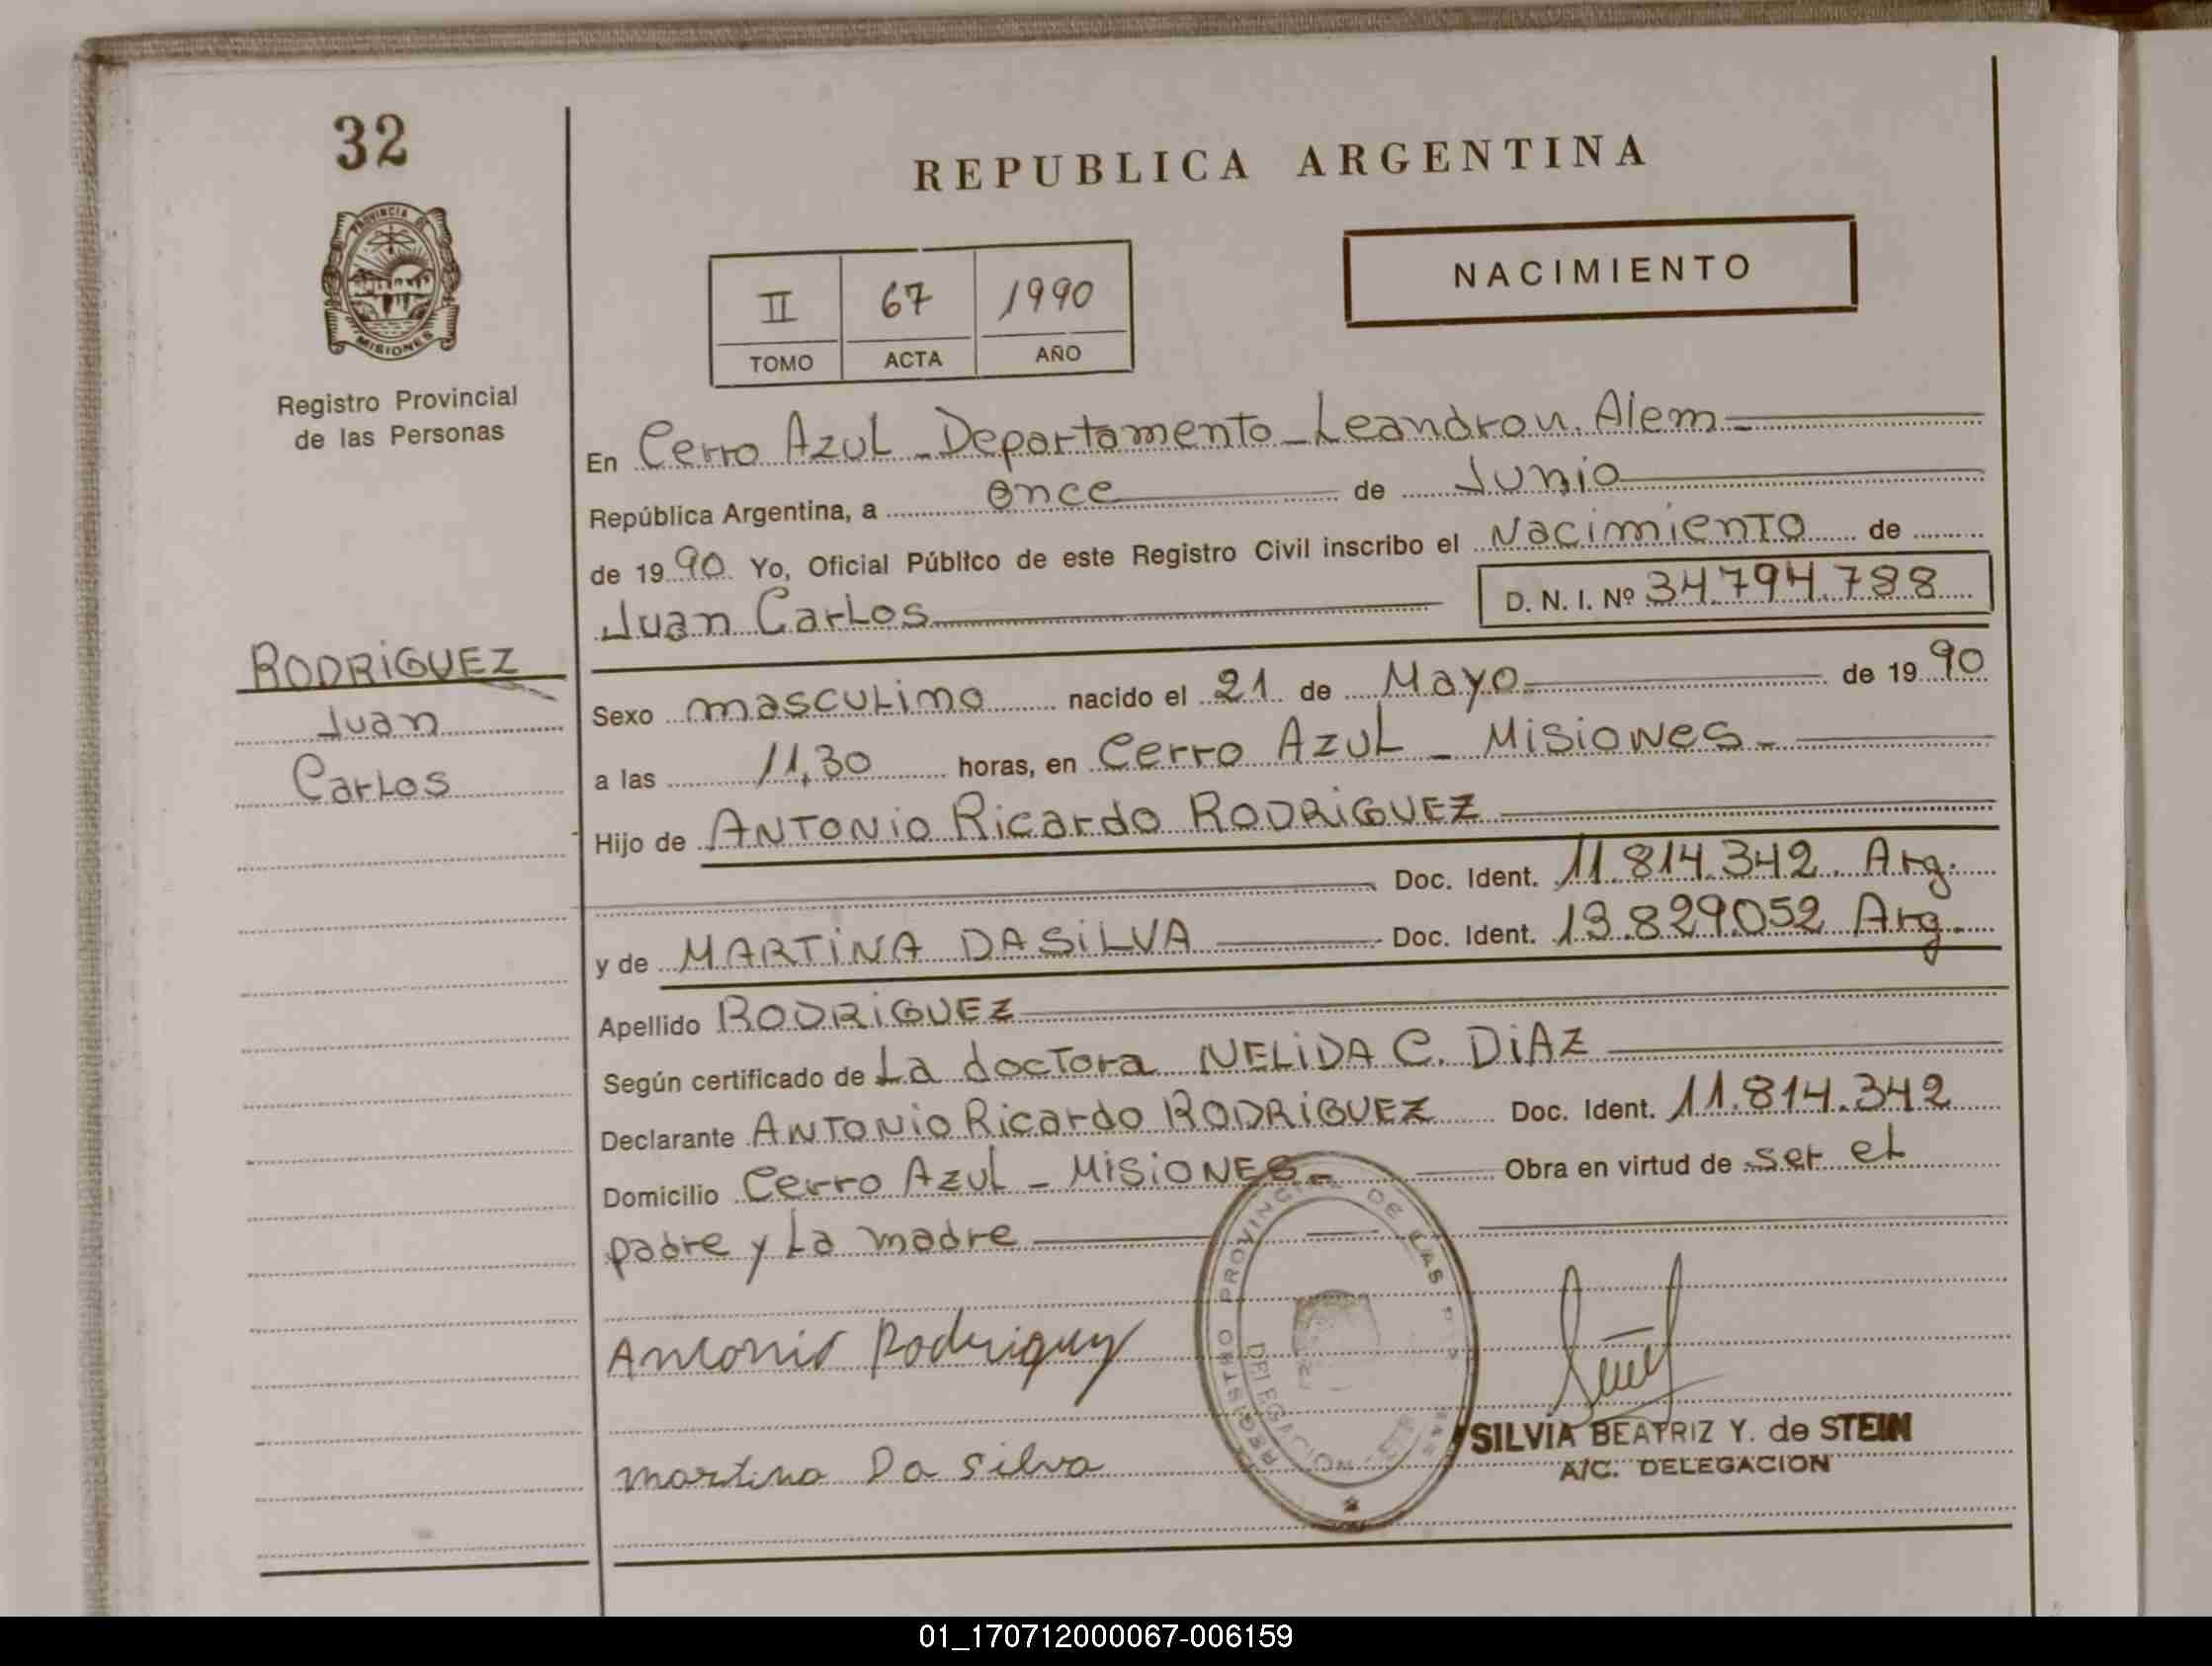 32
PROVINCIA DE
MISIONES
Registro Provincial
de las Personas
RODRIGUEZ
Juan
Carlos
REPUBLICA ARGENTINA
NACIMIENTO
II 67 1990
TOMO ACTA AÑO
En Cerro Azul - Departamento - Leandro N. Alem -
República Argentina, a once de Junio
de 1990 Yo, Oficial Público de este Registro Civil inscribo el Nacimiento de
Juan Carlos D. N. I. Nº 34.794.788
Sexo masculino nacido el 21 de Mayo. de 1990
a las 11,30 horas, en Cerro Azul - Misiones -
Hijo de ANTONIO Ricardo RODRIGUEZ
Doc. Ident. 11.814.342. Arg.
y de MARTINA DA SILVA Doc. Ident. 13.829.052 Arg.
Apellido RODRIGUEZ
Según certificado de La doctora NELIDA C. DIAZ
Declarante ANTONIO Ricardo RODRIGUEZ Doc. Ident. 11.814.342
Domicilio Cerro Azul - MISIONES - Obra en virtud de ser el
padre y La madre
REGISTRO PROVINCIAL DE LAS
DELEGACION
Antonio Rodriguez
Martina Da Silva
SILVIA BEATRIZ Y. de STEIN
A/C. DELEGACION
01_170712000067-006159